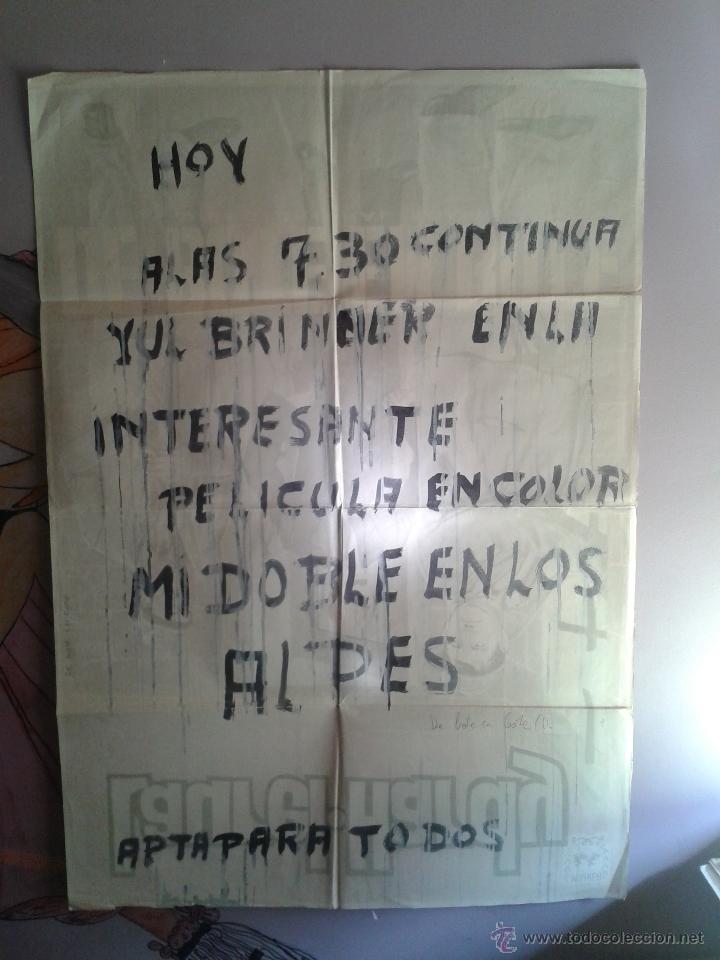 HOY
A LAS 7,30 CONTINUA
YUL BRINNER EN LA
INTERESANTE
PELICULA EN COLOR
MI DOBLE EN LOS
ALPES
De bote en bote
APTA PARA TODOS
www.todocoleccion.net